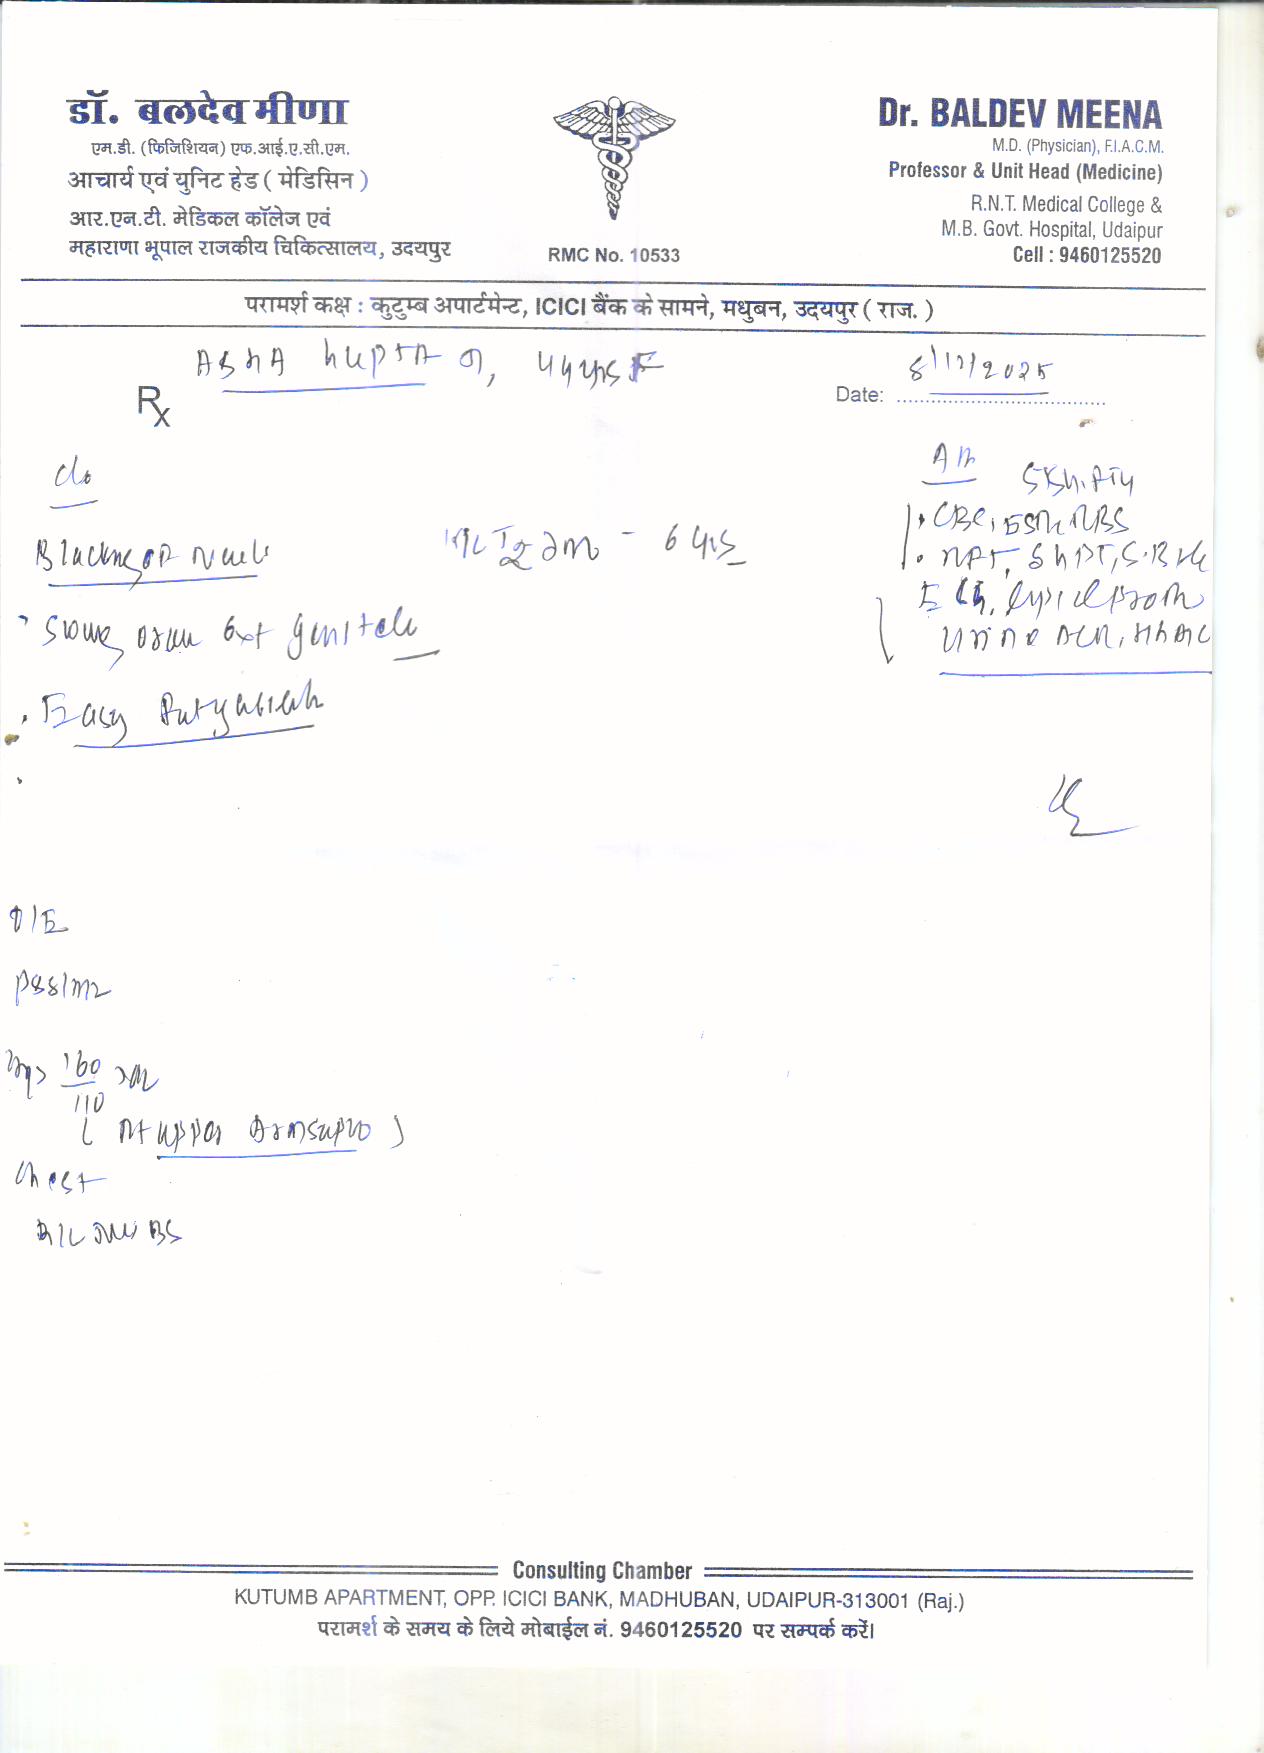 डॉ. बलदेव मीणा
एम.डी. (फिजिशियन) एफ.आई.ए.सी.एम.
आचार्य एवं युनिट हेड ( मेडिसिन )
आर.एन.टी. मेडिकल कॉलेज एवं
महाराणा भूपाल राजकीय चिकित्सालय, उदयपुर
RMC No. 10533
Dr. BALDEV MEENA
M.D. (Physician), F.I.A.C.M.
Professor & Unit Head (Medicine)
R.N.T. Medical College &
M.B. Govt. Hospital, Udaipur
Cell : 9460125520
परामर्श कक्ष : कुटुम्ब अपार्टमेन्ट, ICICI बैंक के सामने, मधुबन, उदयपुर ( राज. )
AShA Gupta 44yrs F
Rx
Date: 8/12/2025
c/o
DM - 6 yrs
Ext genitale
Easy
CBC, ESR, RBS
RFT, SGPT,
ECG, Lipid profile
Urine ACR, HbA1C
O/E
160
110
Rt upper Arm supine )
Chest
B/L BS
Consulting Chamber
KUTUMB APARTMENT, OPP. ICICI BANK, MADHUBAN, UDAIPUR-313001 (Raj.)
परामर्श के समय के लिये मोबाईल नं. 9460125520 पर सम्पर्क करें।